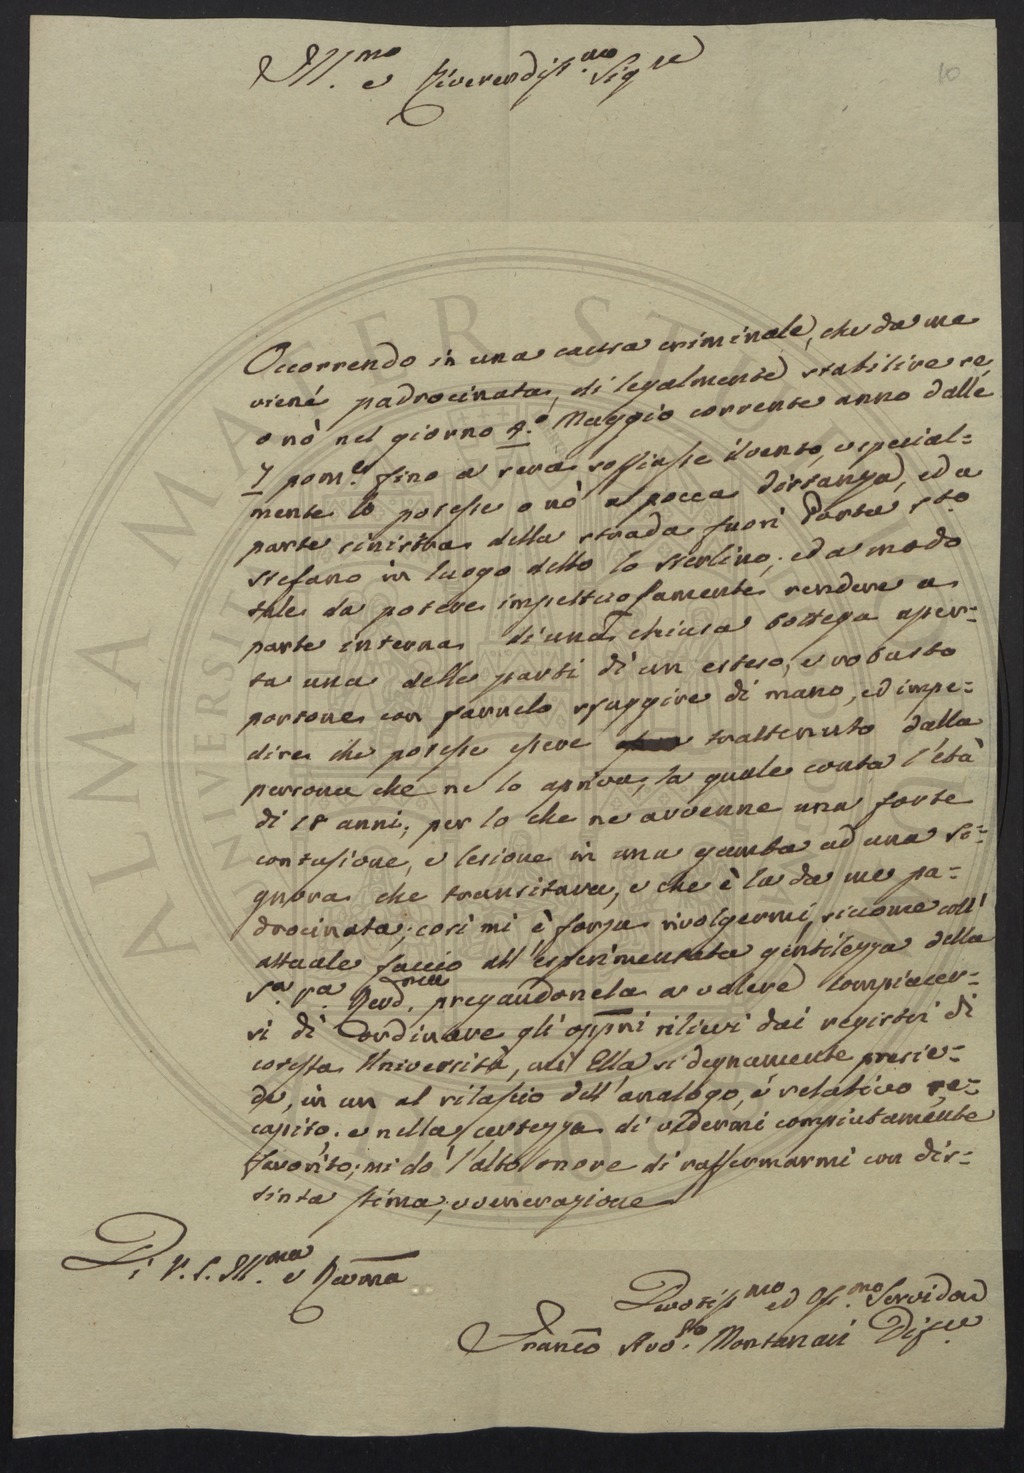 10
Ill.mo e Riverendiss.mo Sig.re
Occorrendo in una causa criminale, che da me
viene padrocinata, di legalmente stabilire se
o nò nel giorno 4.º Maggio corrente anno dalle
7 pom.e fino a sera soffiasse il vento, e special=
mente lo potesse o nò a pocca distanza, ed a
parte sinistra della strada fuori Porta S.to
Stefano in luogo detto lo Sterlino, ed a modo
tale da potere impettuosamente rendere a
parte interna di una chiusa bottega aper=
ta una delle parti di un esteso, e robusto
portone con farnelo sfuggire di mano, ed impe=
dire che potesse essere trattenuto dalla
persona che ne lo apriva, la quale conta l'età
di 18 anni, per lo che ne avvenne una forte
contusione, e lesione in una gamba ad una Si=
gnora che transitava, e che è la da me pa=
drocinata; così mi è forza rivolgermi, siccome coll'
attuale faccio all'esperimentata gentilezza della
S.a V.a Revd.ma pregandonela a volere compiacer=
si di ordinare gli oppni rilievi dai registri di
cotesta Università, cui Ella si degnamente presie=
de, in un al rilascio dell'analogo, e relativo re=
capito; e nella certezza di vedermi compiutamente
favorito, mi dò l'alto onore di raffermarmi con dis=
tinta stima, e venerazione
Di V. S. Ill.ma e Revma
Devotiss.mo ed Oss.mo Servidore
Franco Avv.to Montanari Difre
ALMA MATER STUDIORUM
UNIVERSITÀ DI BOLOGNA